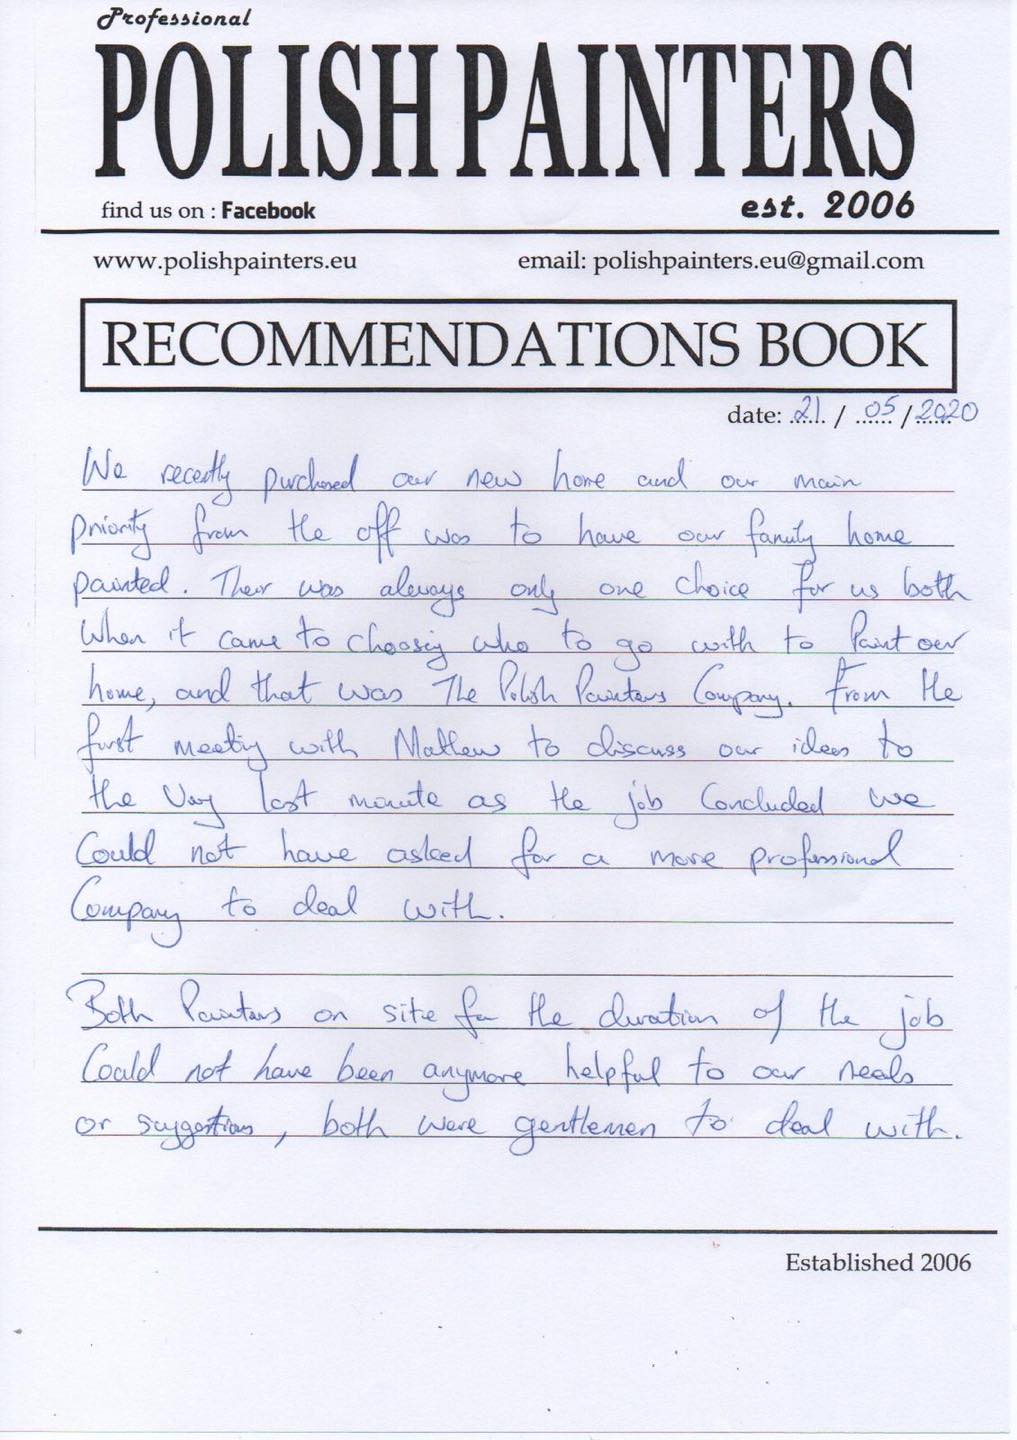 Professional
POLISH PAINTERS
find us on : Facebook
est. 2006
www.polishpainters.eu
email: polishpainters.eu@gmail.com
RECOMMENDATIONS BOOK
date: 21 / 05 / 2020
We recently purchased our new home and our main
priority from the off was to have our family home
painted. Their was always only one choice for us both
When it came to choosing who to go with to Paint our
home, and that was The Polish Painters Company. From the
first meeting with Mathew to discuss our ideas to
the Very last minute as the job Concluded we
Could not have asked for a more professional
Company to deal with.
Both Painters on site for the duration of the job
Could not have been anymore helpful to our needs
or suggestions, both were gentlemen to deal with.
Established 2006